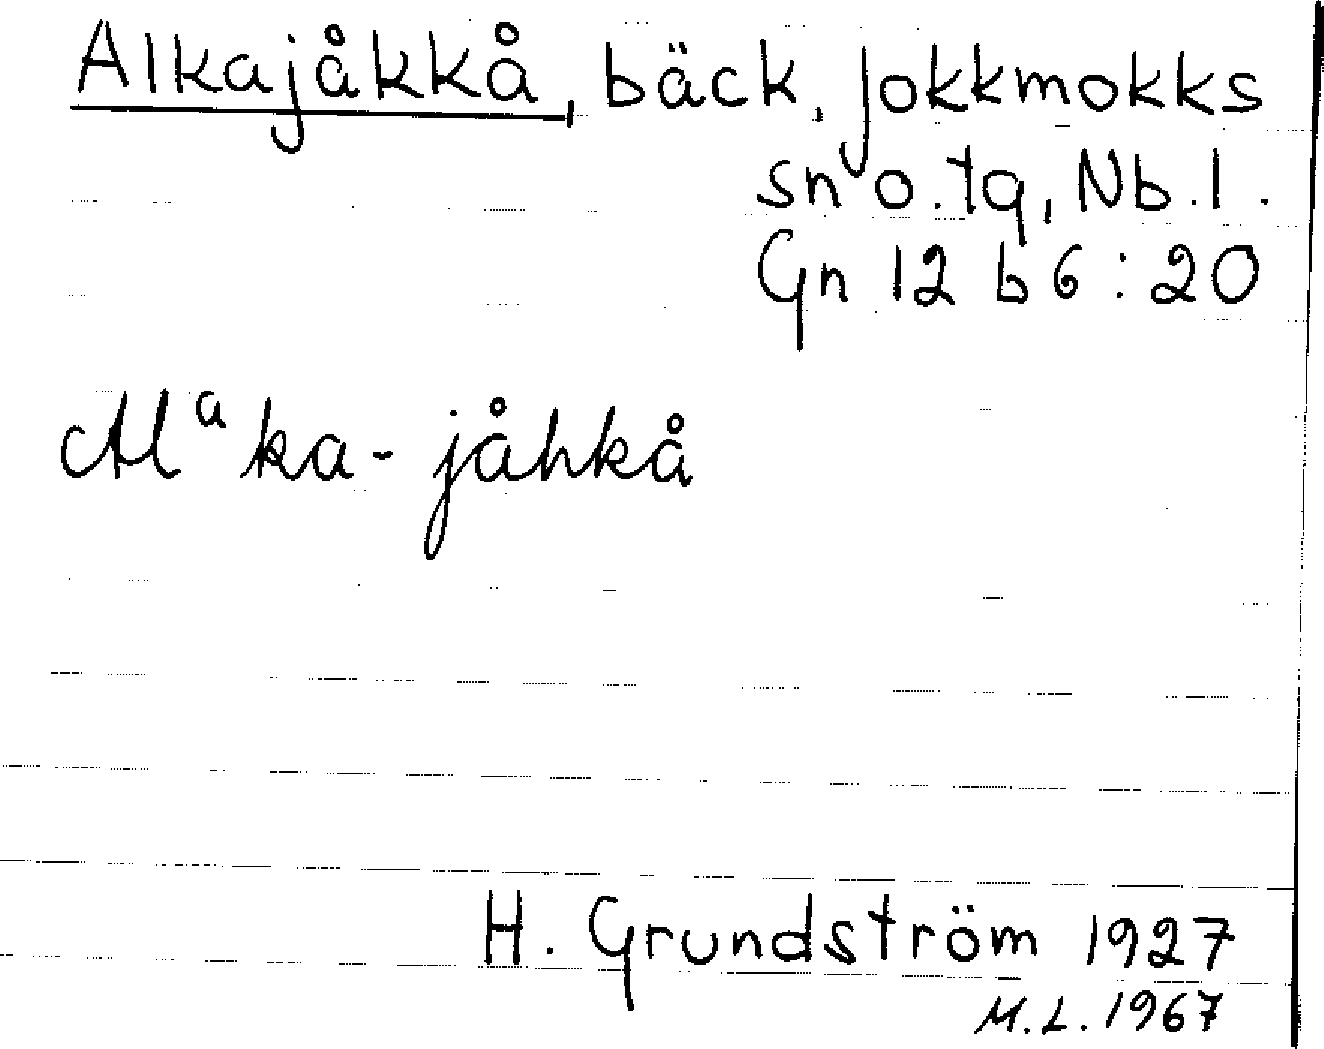 Alkajåkkå, bäck, Jokkmokks
sn o. tg, Nb. l.
Gn 12 b 6 : 20
Alᵃka-jåhkå
H. Grundström 1927
M.L. 1967